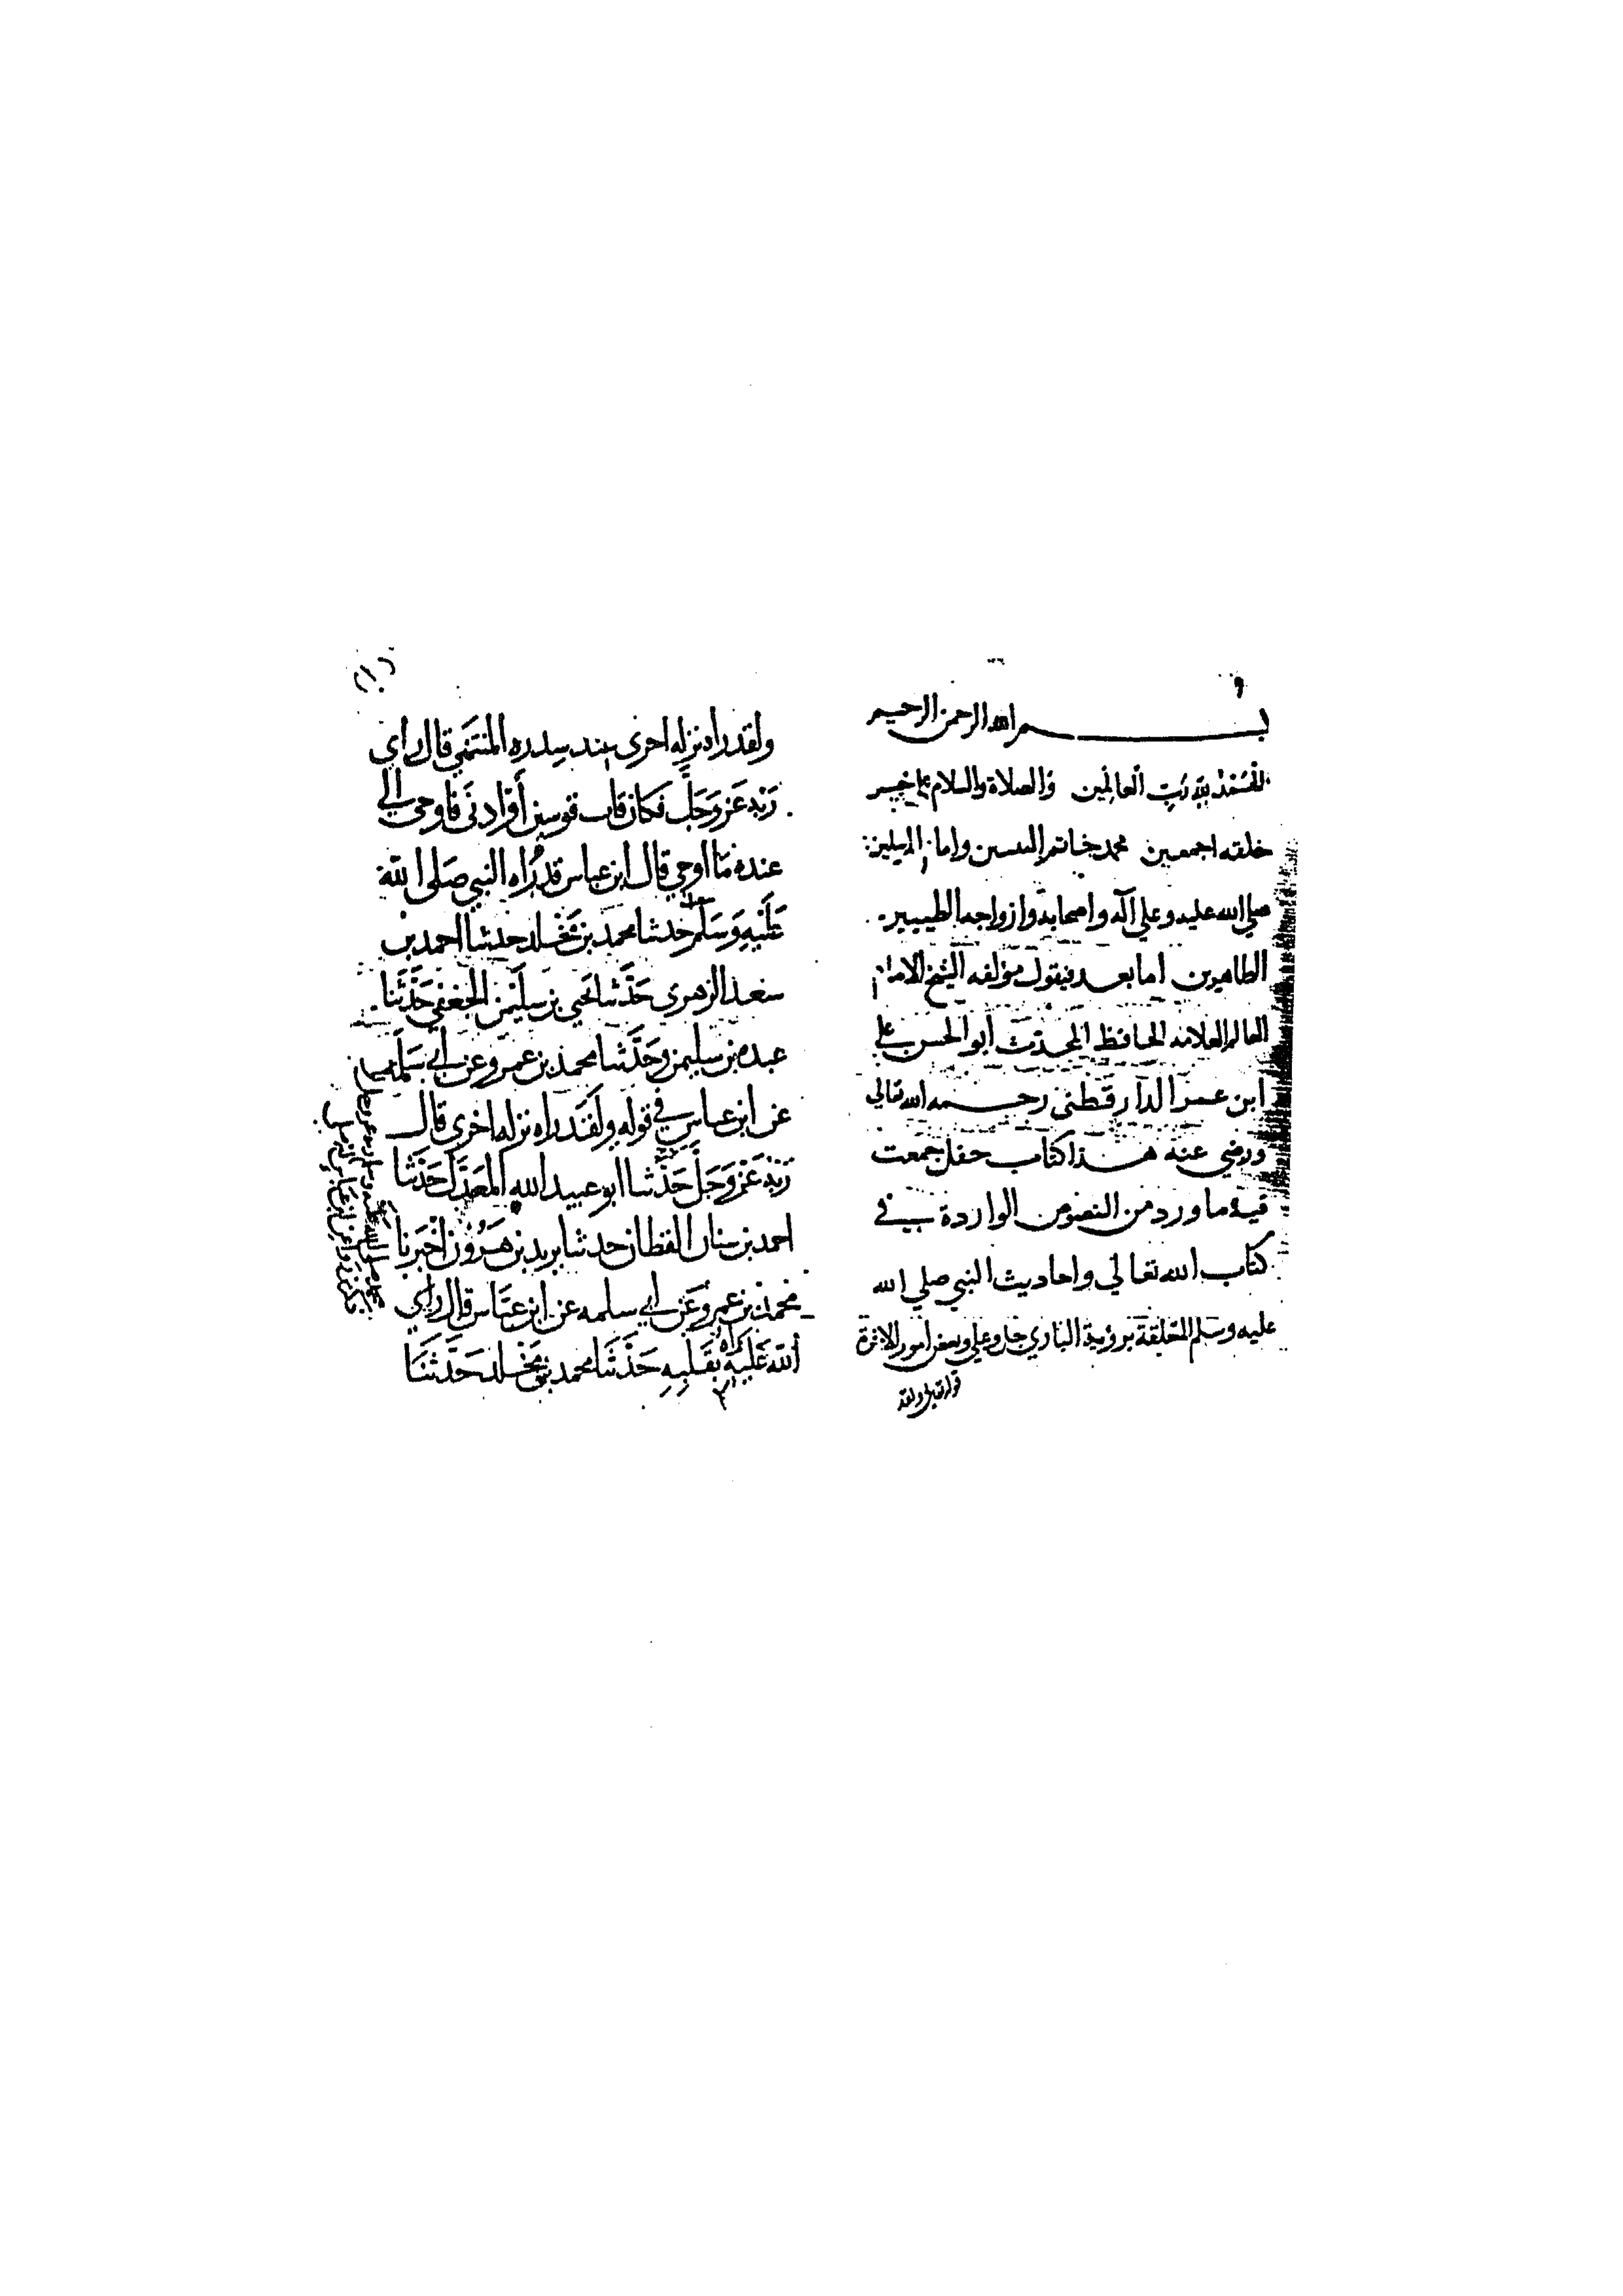 بسم الله الرحمن الرحيم
الحمد لله رب العالمين والصلاة والسلام على خير
خلقه اجمعين محمد خاتم النبيين وامام المرسلين
صلي الله عليه وعلي آله واصحابه وازواجه الطيبين
الطاهرين اما بعد فيقول مؤلفه الشيخ الامام
العالم العلامه الحافظ المحدث أبو الحسن علي
ابن عمر الدارقطني رحمه الله تعالي
ورضي عنه هذا كتاب حفل جمعت
فيه ما ورد من النصوص الواردة في
كتاب الله تعالي واحاديث النبي صلي الله
عليه وسلم المتعلقة برؤية الباري جل وعلي وبعض امور الاخرة
ولقد
ولقد راه نزله اخرى عند سدره المنتهي قال راي
ربه عز وجل فكان قاب قوسين أو ادنى فاوحى الي
عبده ما اوحي قال ابن عباس قد راه النبي صلى الله
عليه وسلم حدثنا محمد بن مخلد حدثنا احمد بن
سعد الزهري حدثنا يحيى بن سليمن الجعفي حدثنا
عبده بن سليمن وحدثنا محمد بن عمرو عن ابي سلمه
عن ابن عباس في قوله ولقد راه نزله اخري قال
ربه عز وجل حدثنا ابو عبيد الله المعدل حدثنا
احمد بن سنان القطان حدثنا يزيد بن هرون اخبرنا
محمد بن عمرو عن ابي سلمه عن ابن عباس قال راي
الله عليه بقلبه حدثنا محمد بن مخلد حدثنا